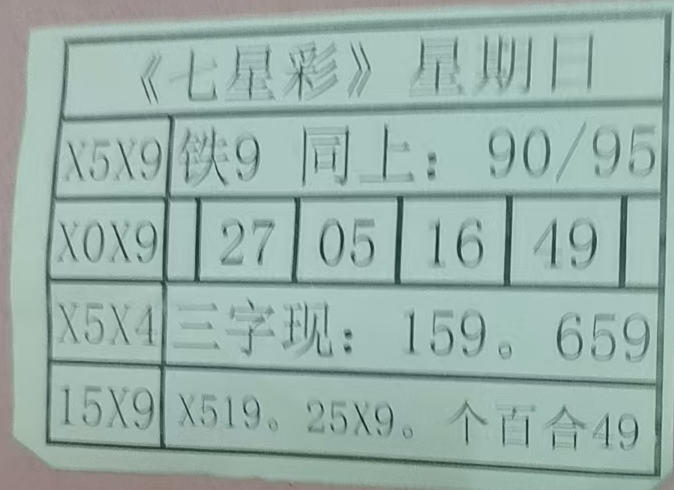 《七星彩》 星期日
X5X9 铁9 同上: 90/95
X0X9 27 05 16 49
X5X4 三字现: 159。659
15X9 X519。25X9。个百合49